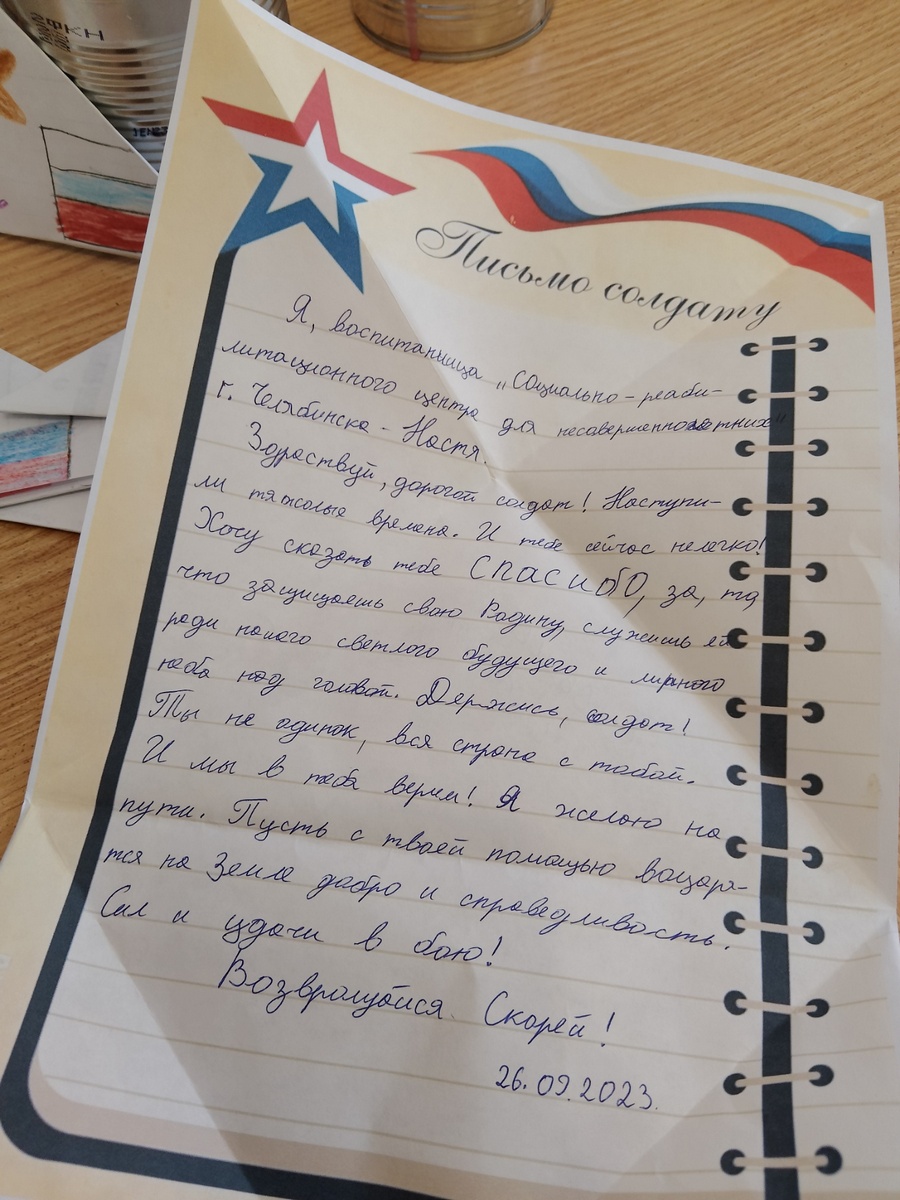 ФКН
Письмо солдату
Я, воспитанница „Социально-реаби-
литационного центра для несовершеннолетних"
г. Челябинска - Настя.
Здраствуй, дорогой солдат! Наступи-
ли тяжолые времена. И тебе сейчас нелегко!
Хочу сказать тебе Спасибо, за, то
что защищаешь свою Родину, служишь ей
ради нашего светлого будущего и мирного
неба над головой. Держись, солдат!
Ты не одинок, вся страна с тобой.
И мы в тебя верим! Я желаю на
пути. Пусть с твоей помощью воцаря-
тся на Земле добро и справедливость.
Сил и удачи в бою!
Возвращайся Скорей!
26.09.2023.